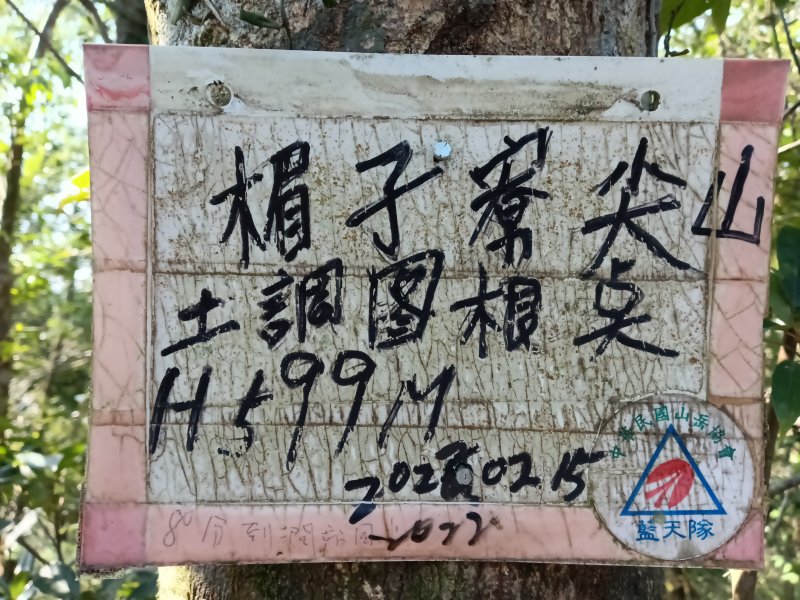 楣子寮尖山
土調圖根点
H599M
2022 02 15
2022
中華民國山岳協會
藍天隊